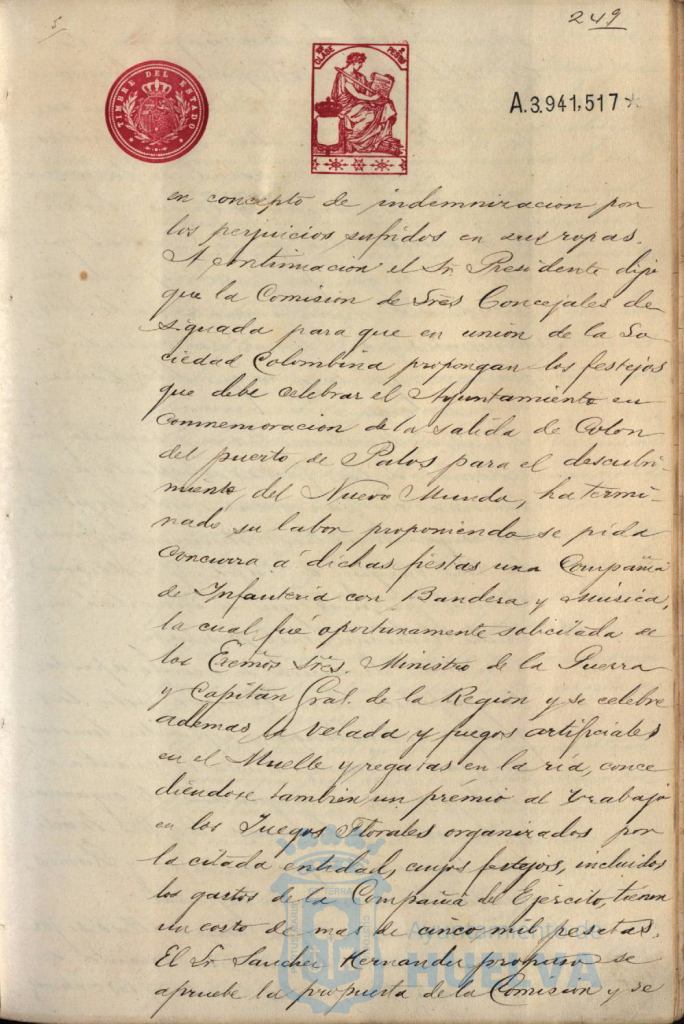 249
TIMBRE DEL ESTADO
CLASE
A.3.941,517*
en concepto de indemnizacion por
los perjuicios sufridos en sus ropas.
A continuacion el Sr. Presidente dijo
que la Comision de Sres Concejales de
signada para que en union de la So
ciedad Colombina propongan los festejos
que debe celebrar el Ayuntamiento en
conmemoracion de la salida de Colon
del puerto de Palos para el descubri
miento del Nuevo Mundo, ha termi-
nado su labor proponiendo se pida
concurra á dichas fiestas una Compañia
de Infanteria con Bandera y Música,
la cual fué oportunamente solicitada de
los Excmos Sres. Ministro de la Guerra
y Capitan Gral. de la Region y se celebre
ademas la velada y fuegos artificiales
en el Muelle y regatas en la ria, conce
diéndose tambien un premio al trabajo
en los Juegos Florales organizados por
la citada entidad, cuyos festejos, incluidos
los gastos de la Compañia del Ejército, tienen
un costo de mas de cinco mil pesetas.
El Sr Sanchez Hernandez propuso se
apruebe la propuesta de la Comision y se
Ayuntamiento de
HUELVA